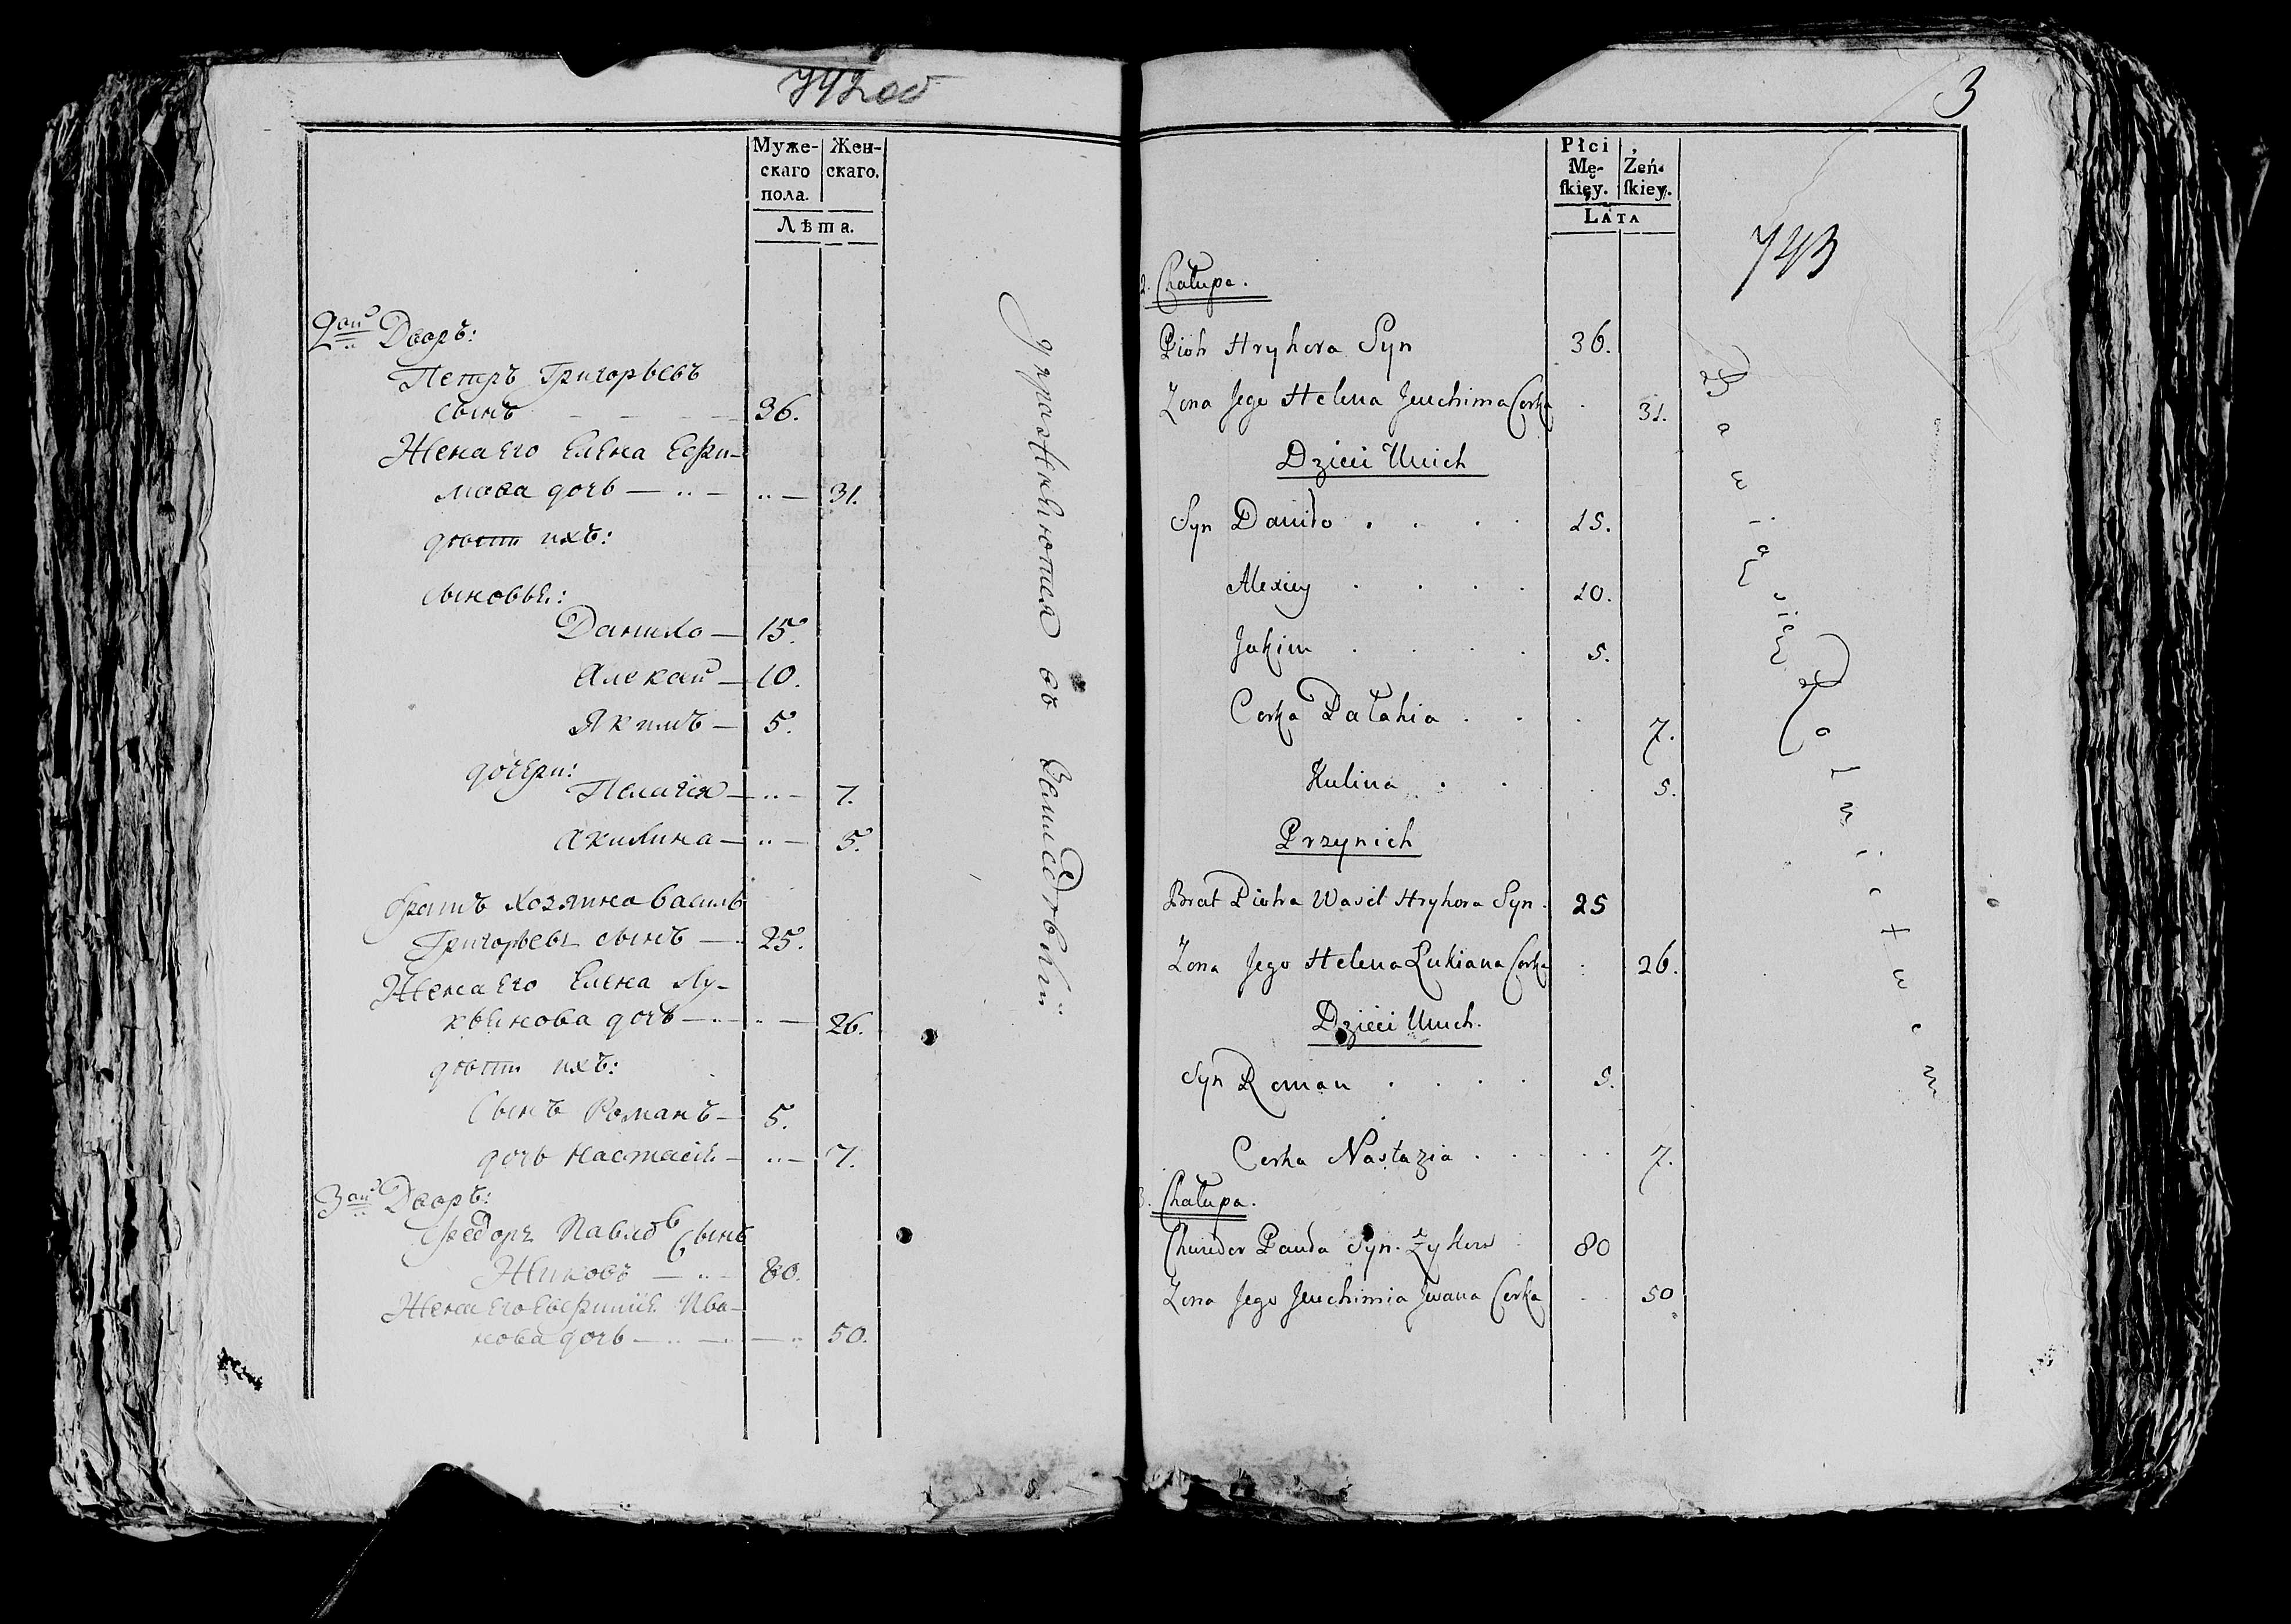 742 об
Муже-
скаго
пола.
Жен-
скаго.
Лѣта.
2ой Дворъ:
Петръ Григорьевъ
сынъ 36.
Жена его Елена Ефи-
мова дочь 31.
дѣти ихъ:
сыновья:
Данило 15.
Алексей 10.
Якимъ 5.
дочери:
Пелагея 7.
Акилина 5.
братъ хозяина Василь
Григорьевъ сынъ 25.
Жена его Елена Лу-
кьянова дочь 26.
дѣти ихъ:
Сынъ Романъ 5.
дочь Настасья 7.
3ой Дворъ:
Федоръ Павловъ сынъ
Жиковъ 80.
Жена его Евфимия Ива-
нова дочь 50.
упражняются въ земледѣлии
3
743
Płci
Mę-
ſkiey.
Żeń-
ſkiey.
Lata
2. Chałupa.
Piotr Hryhora Syn 36.
Zona Jego Helena Jeuchima Corka 31.
Dzieci Unich
Syn Daniło 15.
Alexiey 10.
Jakim 5.
Corka Pałahia 7.
Kulina 5.
Przynich
Brat Piotra Wasil Hryhora Syn 25
Zona Jego Helena Łukiana Corka 26.
Dzieci Unich.
Syn Roman 5.
Corka Nastazia 7.
3. Chałupa.
Chwiedor Pauła Syn Żykow 80
Zona Jego Jeuchimia Jwana Corka 50
Bawią się Rolnictwem